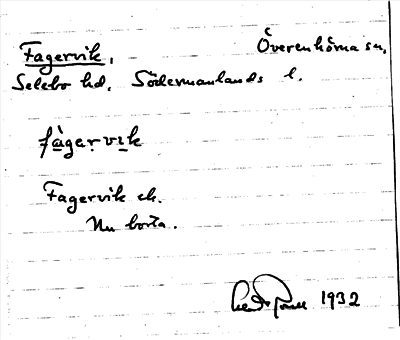 Fagervik, Överenhörna sn,
Selebo hd. Södermanlands l.
fàgervik
Fagervik ek.
Nu borta.
1932